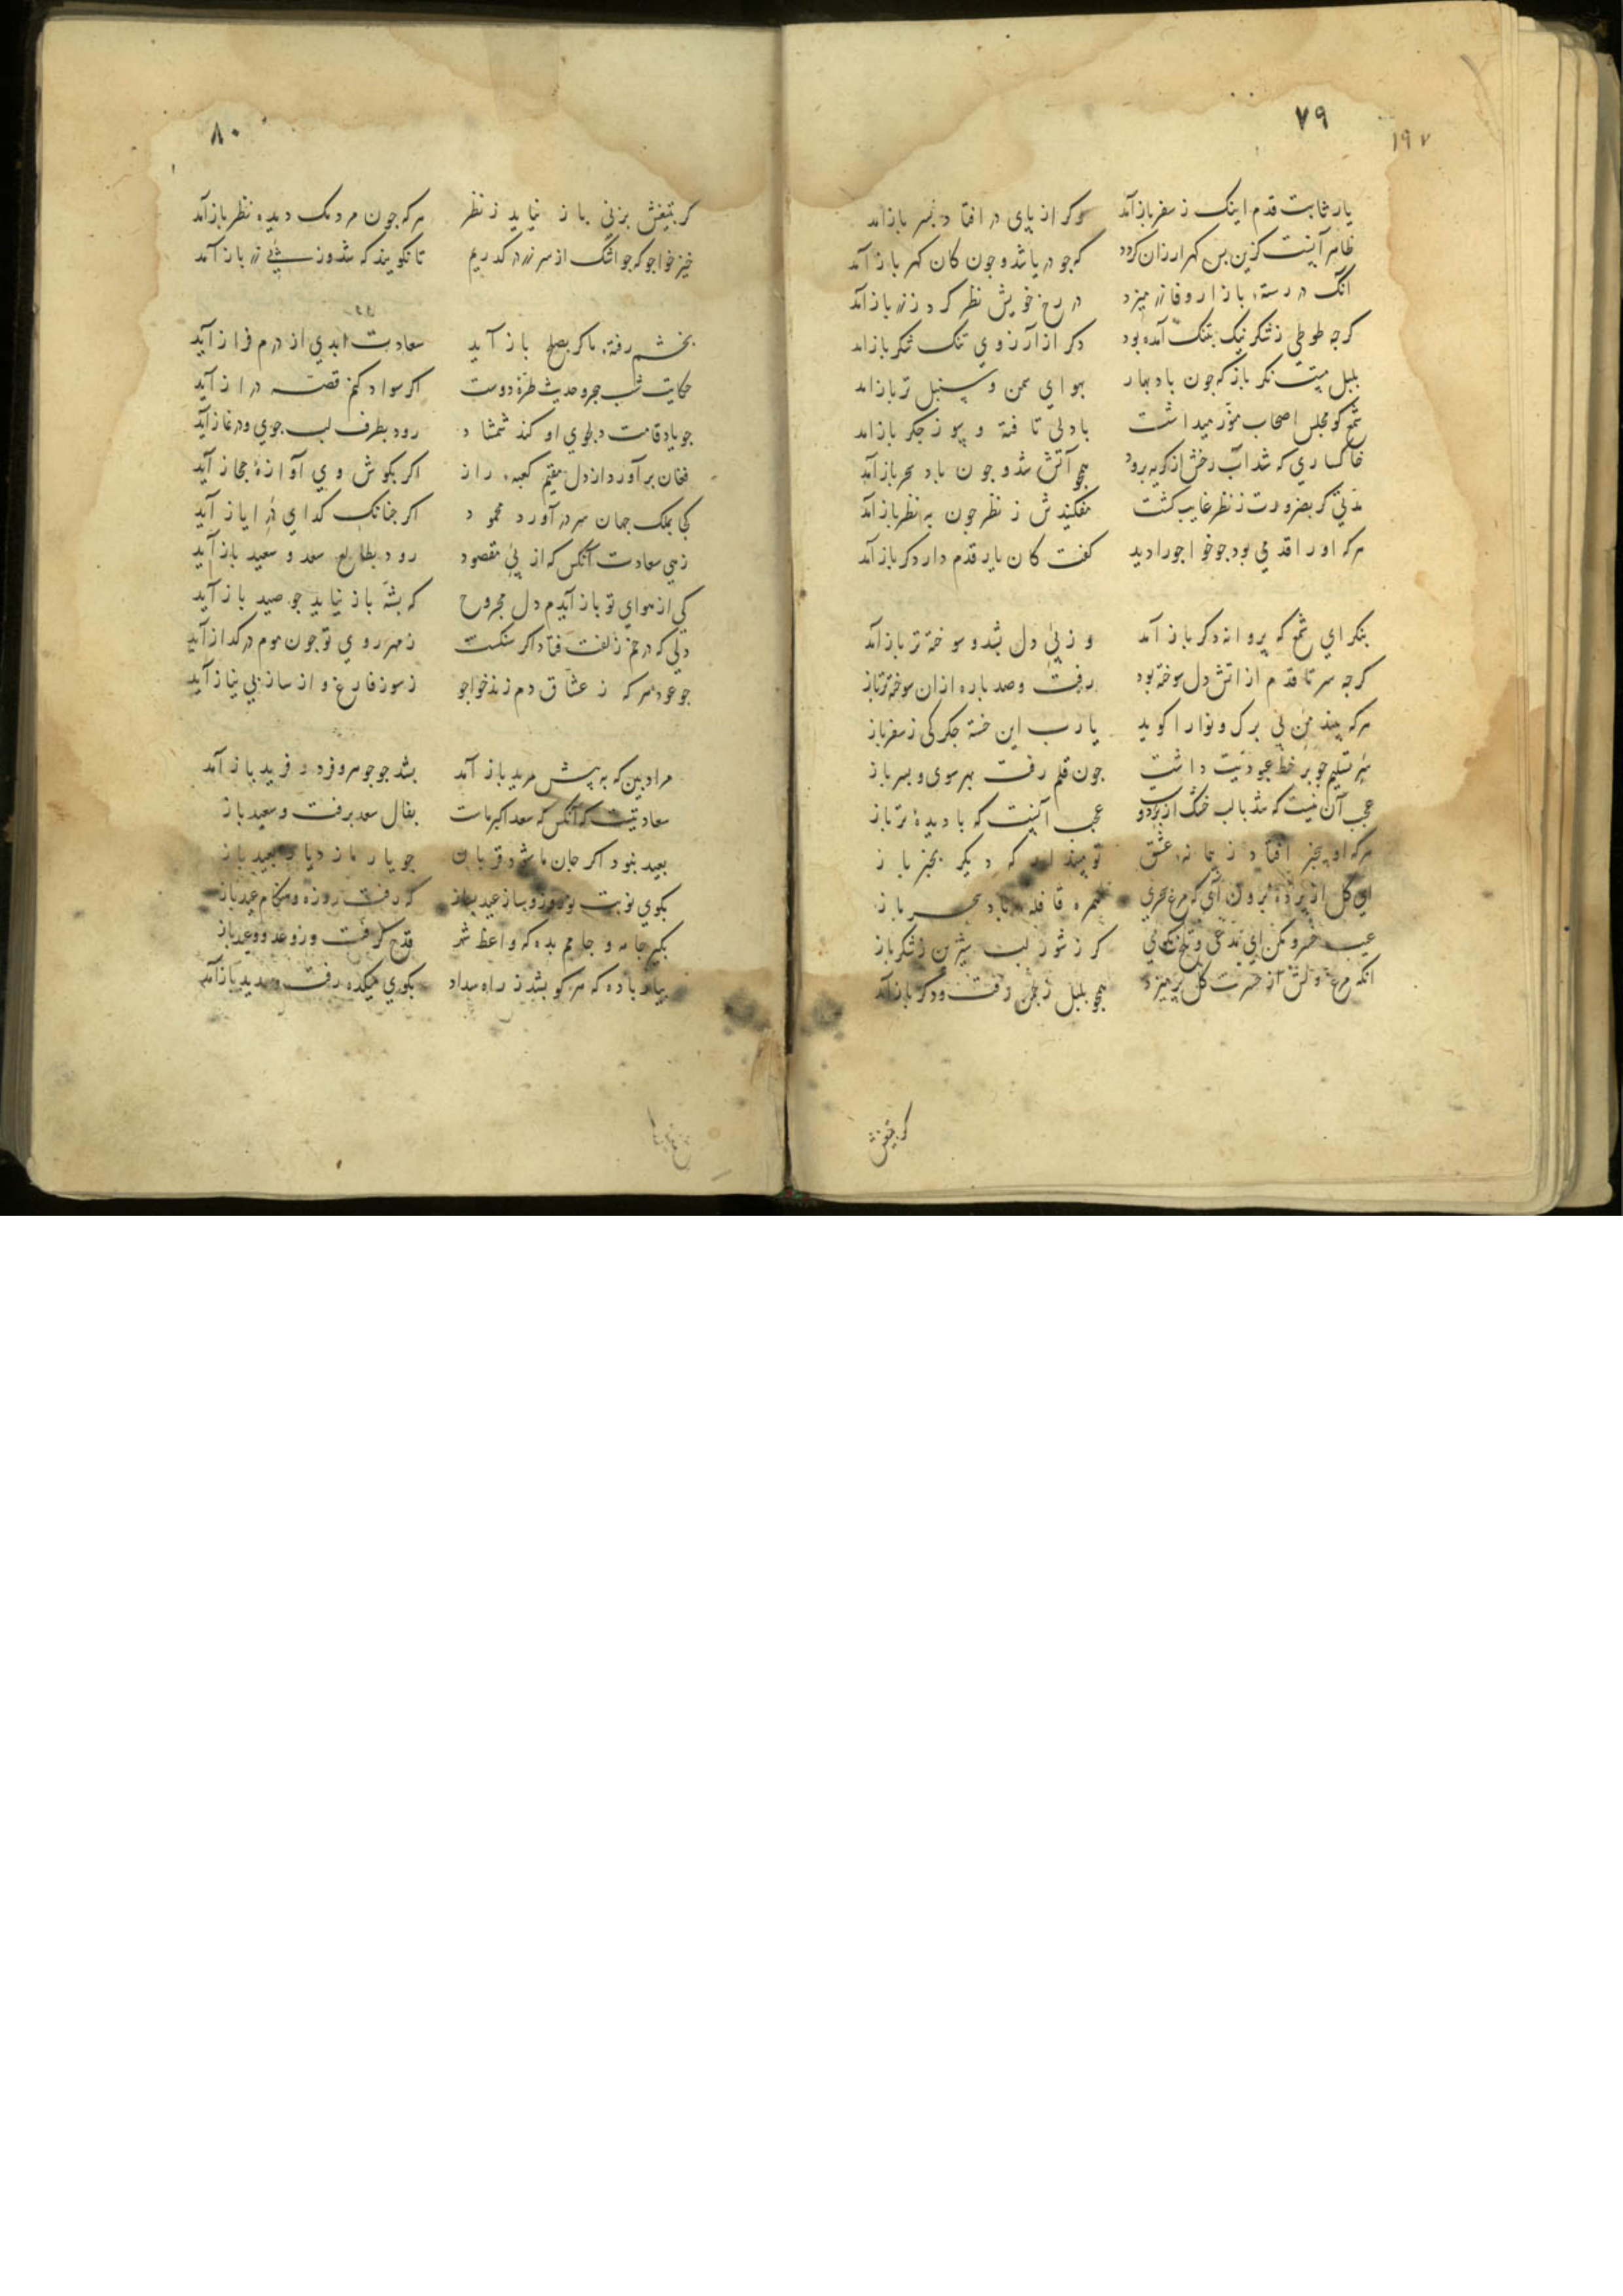 ۷۹
۱۹۷
یار ثابت قدم اینک ز سفر بازآمد وکر از پای در افتاد بسر بازآمد
ظاهر آنست کزین بس کهر ارزان کردد که جو دریا شد و جون کان کهر بازآمد
انک در رستهٔ بازار وفا زر میزد در رخ خویش نظر کرد و ز زر بازآمد
کرجه طوطی ز شکر نیک بتنک آمده بود دکر از آرزوی تنک شکر بازآمد
بلبل مست نکر باز که جون باد بهار بهوای سمن و سنبل تر بازآمد
شمع کو مجلس اصحاب منور میداشت با دلی تافته و سوز جکر بازآمد
خاکساری که شد آب رخش از کریه برود همجو آتش شد و جون باد سحر بازآمد
مدتی کر بضرورت ز نظر غایب کشت مفکنیدش ز نظر جون به نظر بازآمد
هر که او را قدمی بود جو خواجو را دید کفت کان یار قدم دار دکر بازآمد
بنکر ای شمع که پروانه دکر بازآمد وز پی دل بشد و سوخته تر بازآمد
کرجه سر تا قدم از اتش دل سوخته بود رفت و صد باره از ان سوخته تر باز
هر که بیند من بی برک و نوا را کوید یا رب این خسته جکر کی ز سفر باز
سر تسلیم جو بر خط عبودیت داشت جون قلم رفت بهر سوی و بسر باز
عجب آن نیست که شد با لب خشک از بر دو عجب آنست که با دیدهٔ تر باز
هر که او بیخبر افتاد ز پیمانهٔ عشق تو مپندار که دیکر بخبر باز
ای کل از پرده برون آی که مرغ سحری همره قافلهٔ باد سحر باز
عیب خسرو مکن ای مدعی و تلخ مکوی کر ز شور لب شیرین بشکر باز
انکه مرغ دلش از حسرت کل پر میزد همجو بلبل ز جمن رفت و دکر بازآمد
کر بتیغش
۸۰
کر بتیغش بزنی باز نیاید ز نظر هر که جون مردمک دیده نظر بازآمد
خیز خواجو که جو اشک از سر زر در کذریم تا نکویند که شد وز پی زر بازآمد
بخشم رفتهٔ ما کر بصلح بازآید سعادت ابدی از درم فراز آید
حکایت شب هجر و حدیث طرهٔ دوست اکر سواد کنم قصه دراز آید
جو یاد قامت دلجوی او کند شمشاد رود بطرف لب جوی و در نماز آید
فغان برآورد از دل مقیم کعبهٔ راز اکر بکوش وی آوازهٔ مجاز آید
کجا بملک جهان سر در آورد محمود اکر جنانک کدای در ایاز آید
زهی سعادت آنکس که از پی مقصود رود بطالع سعد و سعید بازآید
کی از هوای تو بازآیدم دل مجروح که پشه باز نیاید جو صید باز آید
دلی که در خم زلفت فتاد اکر سنکست ز مهر روی تو جون موم در کداز آید
جو عود هر که ز عشاق دم زند خواجو ز سوز فارغ و از ساز بی نیاز آید
مراد بین که به پیش مرید بازآمد بشد جو جوهر و فرد و فرید بازآمد
سعادتیست که آنکس که سعد اکبر ماست بفال سعد برفت و سعید باز
بعید نبود اکر جان ما شود قربان جو یار ما ز دیار بعید باز
بکوی نوبت نوروز و ساز عید بساز که رفت روزه و هنکام عید باز
بکیر جامه و جامم بده که واعظ شهر قدح کرفت و ز وعد و وعید باز
بیار باده که هر کو بشد ز راه سداد بکوی میکده رفت و سدید بازآمد